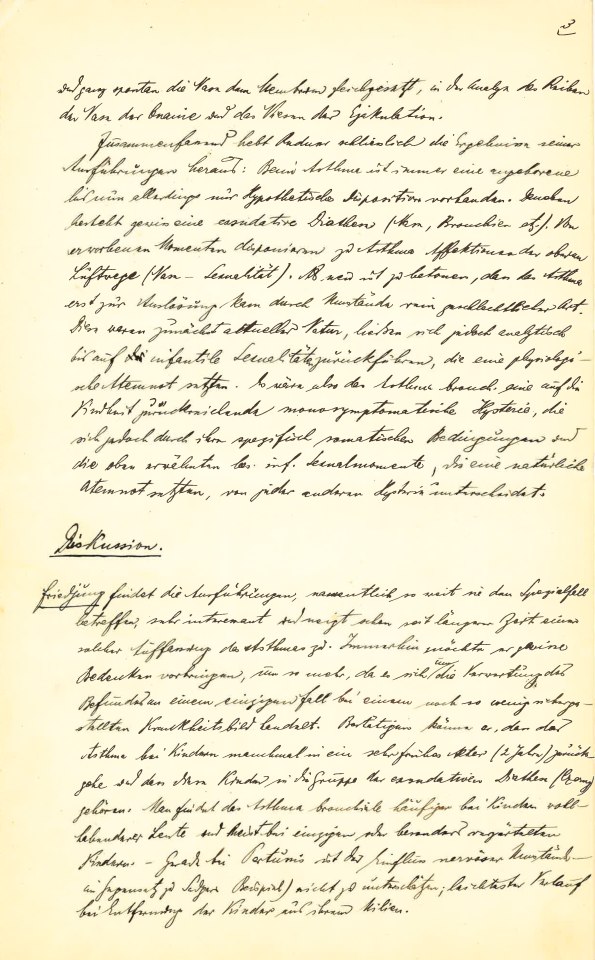 3
und ganz spontan die Nase dem Membrum gleichgesetzt, in der Analyse das Reiben
der Nase der Onanie und das Niesen der Ejakulation.
Zusammenfassend hebt Redner schliesslich die Ergebnisse seiner
Ausführungen heraus: Beim Asthma ist immer eine angeborene
bis nun allerdings nur hypothetische Disposition vorhanden. Daneben
besteht gewiss eine exsudative Diathese (Nase, Bronchien etz.). Von
erworbenen Momenten disponieren zu Asthma Affektionen der oberen
Luftwege (Nase – Sexualität). Als neu ist zu betonen, dass das Asthma
erst zur Auslösung kam durch Umstände rein geschlechtlicher Art.
Diese waren zunächst aktueller Natur, liessen sich jedoch analytisch
bis auf infantile Sexualität zurückführen, die eine physiologi-
sche Atemnot setzten. Es wäre also das Asthma bronch. eine auf die
Kindheit zurückreichende monosymptomatische Hysterie, die
sich jedoch durch ihre spezifisch somatischen Bedingungen und
die oben erwähnten bes. inf. Sexualmomente, die eine natürliche
Atemnot setzten, von jeder anderen Hysterie unterscheidet.
Diskussion.
Friedjung findet die Ausführungen, namentlich so weit sie den Spezialfall
betreffen, sehr interessant und neigt schon seit längerer Zeit einer
solchen Auffassung des Asthmas zu. Immerhin möchte er gewisse
Bedenken vorbringen, um so mehr, da es sich um die Verwertung des
Befundes an einem einzigen Fall bei einem noch so wenig sicherge-
stellten Krankheitsbild handelt. Bestätigen könne er, dass das
Asthma bei Kindern manchmal in ein sehr frühes Alter (2 Jahre) zurück-
gehe und dass diese Kinder in die Gruppe der exsudativen Diathese
gehören. Man findet das Asthma bronchiale häufiger bei Kindern
lebender Leute und meist bei einzigen oder besonders verzärtelten
Kindern. – Grade bei Pertussis ist der Einfluss nervöser Umstände –
im Gegensatz zu Sadgers Beispiel) nicht zu unterschätzen; leichtester Verlauf
bei Entfernung der Kinder aus ihrem Milieu.